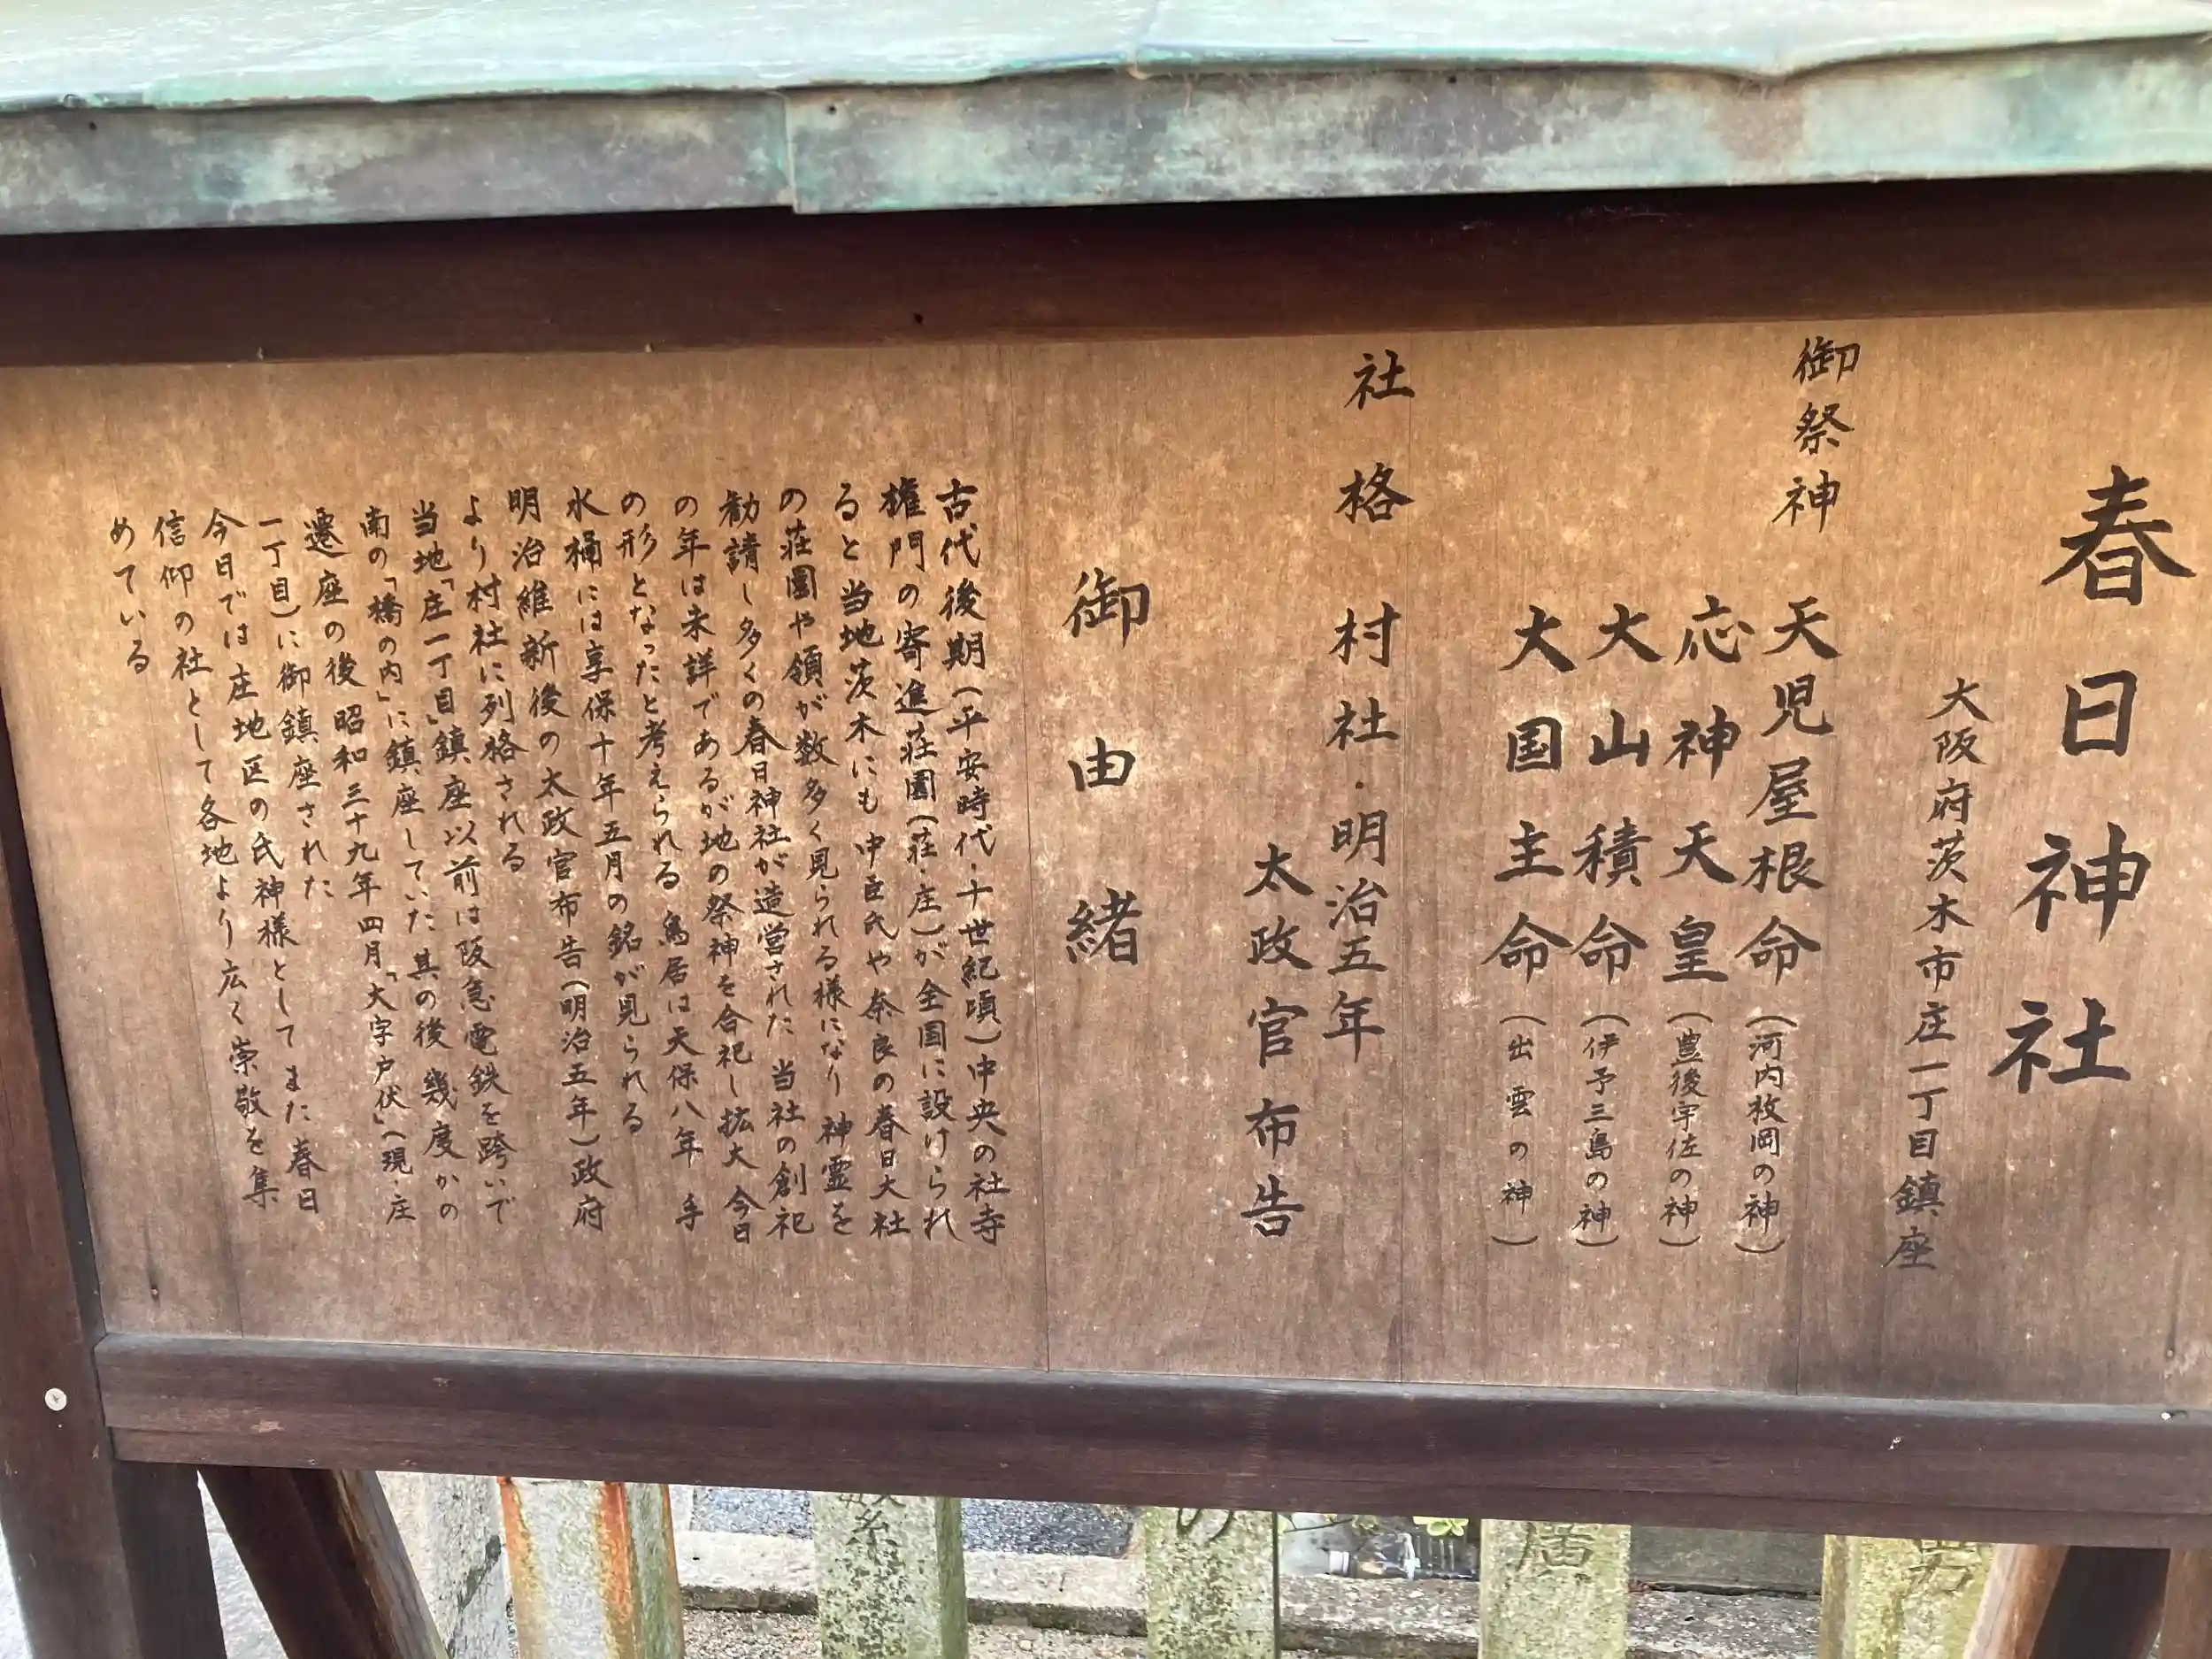 春日神社
大阪府茨木市庄一丁目鎮座
御祭神 天児屋根命(河内枚岡の神)
応神天皇(豊後宇佐の神)
大山積命(伊予三島の神)
大国主命(出雲の神)
社格 村社・明治五年
太政官布告
御由緒
古代後期(平安時代・十世紀頃)中央の社寺
権門の寄進荘園(荘・庄)が全国に設けられ
ると当地茨木にも中臣氏や奈良の春日大社
の荘園や領が数多く見られる様になり 神霊を
勧請し多くの春日神社が造営された 当社の創祀
の年は未詳であるが地の祭神を合祀し拡大 今日
の形となったと考えられる 鳥居は天保八年 手
水桶には享保十年五月の銘が見られる
明治維新後の太政官布告(明治五年)政府
より村社に列格される
当地「庄一丁目」鎮座以前は阪急電鉄を跨いで
南の「橋の内」に鎮座していた 其の後 幾度かの
遷座の後 昭和三十九年四月「大字戸伏」(現・庄
一丁目)に御鎮座された
今日では庄地区の氏神様として また春日
信仰の社として各地より広く崇敬を集
めている
繁
の
廣
男